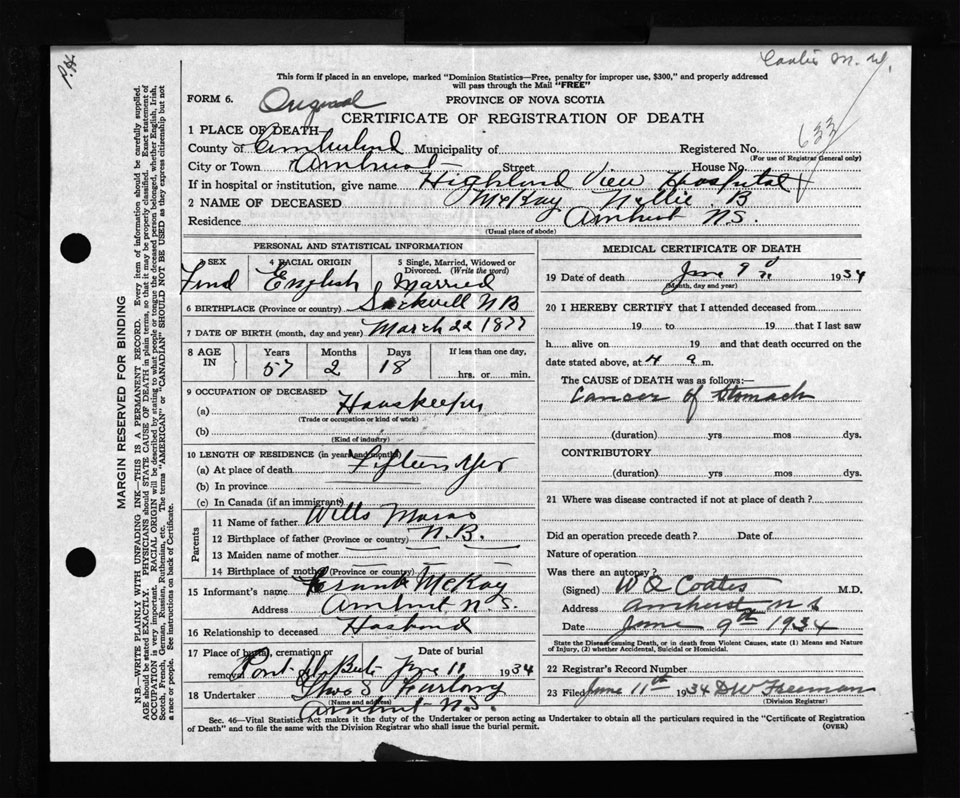 This form if placed in an envelope, marked "Dominion Statistics—Free, penalty for improper use, $300," and properly addressed
will pass through the Mail "FREE"
FORM 6. Original
PROVINCE OF NOVA SCOTIA
CERTIFICATE OF REGISTRATION OF DEATH
633
1 PLACE OF DEATH—
County of Cumberland Municipality of Registered No.
(For use of Registrar General only)
City or Town Amherst Street House No.
If in hospital or institution, give name Highland View Hospital
2 NAME OF DECEASED McKay Nellie B
Residence Amherst N.S.
(Usual place of abode)
PERSONAL AND STATISTICAL INFORMATION
3 SEX 4 RACIAL ORIGIN 5 Single, Married, Widowed or
Divorced. (Write the word)
English Married
6 BIRTHPLACE (Province or country) Sackvill NB
7 DATE OF BIRTH (month, day and year) March 22 1877
8 AGE IN Years Months Days If less than one day,
57 2 18 hrs. or min.
9 OCCUPATION OF DECEASED
(a) Houskeeper
(Trade or occupation or kind of work)
(b)
(Kind of industry)
10 LENGTH OF RESIDENCE (in years and months)
(a) At place of death Fifteen Yrs
(b) In province
(c) In Canada (if an immigrant)
Parents
11 Name of father Wills
12 Birthplace of father (Province or country) N.B.
13 Maiden name of mother
14 Birthplace of mother (Province or country)
15 Informant's name Frank McKay
Address Amherst N.S.
16 Relationship to deceased Husband
17 Place of burial, cremation or removal Date of burial
Point De Bute June 11 1934
18 Undertaker Thos S Furlong
(Name and address)
Amherst N.S.
MEDICAL CERTIFICATE OF DEATH
19 Date of death June 9 1934
(Month, day and year)
20 I HEREBY CERTIFY that I attended deceased from
19 to 19 that I last saw
h alive on 19 and that death occurred on the
date stated above, at 4 a m.
The CAUSE OF DEATH was as follows:—
Cancer of Stomach
(duration) yrs mos dys.
CONTRIBUTORY
(duration) yrs. mos. dys.
21 Where was disease contracted if not at place of death?
Did an operation precede death? Date of
Nature of operation
Was there an autopsy?
(Signed) Coates M.D.
Address Amherst N S
Date June 9th 1934
State the Disease causing Death, or in death from Violent Causes, state (1) Means and Nature
of Injury, and (2) whether Accidental, Suicidal or Homicidal.
22 Registrar's Record Number
23 Filed June 11th 1934 D W Freeman
(Division Registrar)
Sec. 46—Vital Statistics Act makes it the duty of the Undertaker or person acting as Undertaker to obtain all the particulars required in the "Certificate of Registration
of Death" and to file the same with the Division Registrar who shall issue the burial permit. (OVER)
MARGIN RESERVED FOR BINDING
N.B.—WRITE PLAINLY WITH UNFADING INK—THIS IS A PERMANENT RECORD. Every item of information should be carefully supplied.
AGE should be stated EXACTLY. PHYSICIANS should STATE CAUSE OF DEATH in plain terms, so that it may be properly classified. Exact statement of
OCCUPATION is very important. RACIAL ORIGIN will be described by stating to what people or tongue the deceased person belonged, whether English, Irish,
Scotch, French, German, Russian, Ruthenian, etc. The terms "AMERICAN" or "CANADIAN" SHOULD NOT BE USED as they express citizenship but not
a race or people. See instructions on back of Certificate.